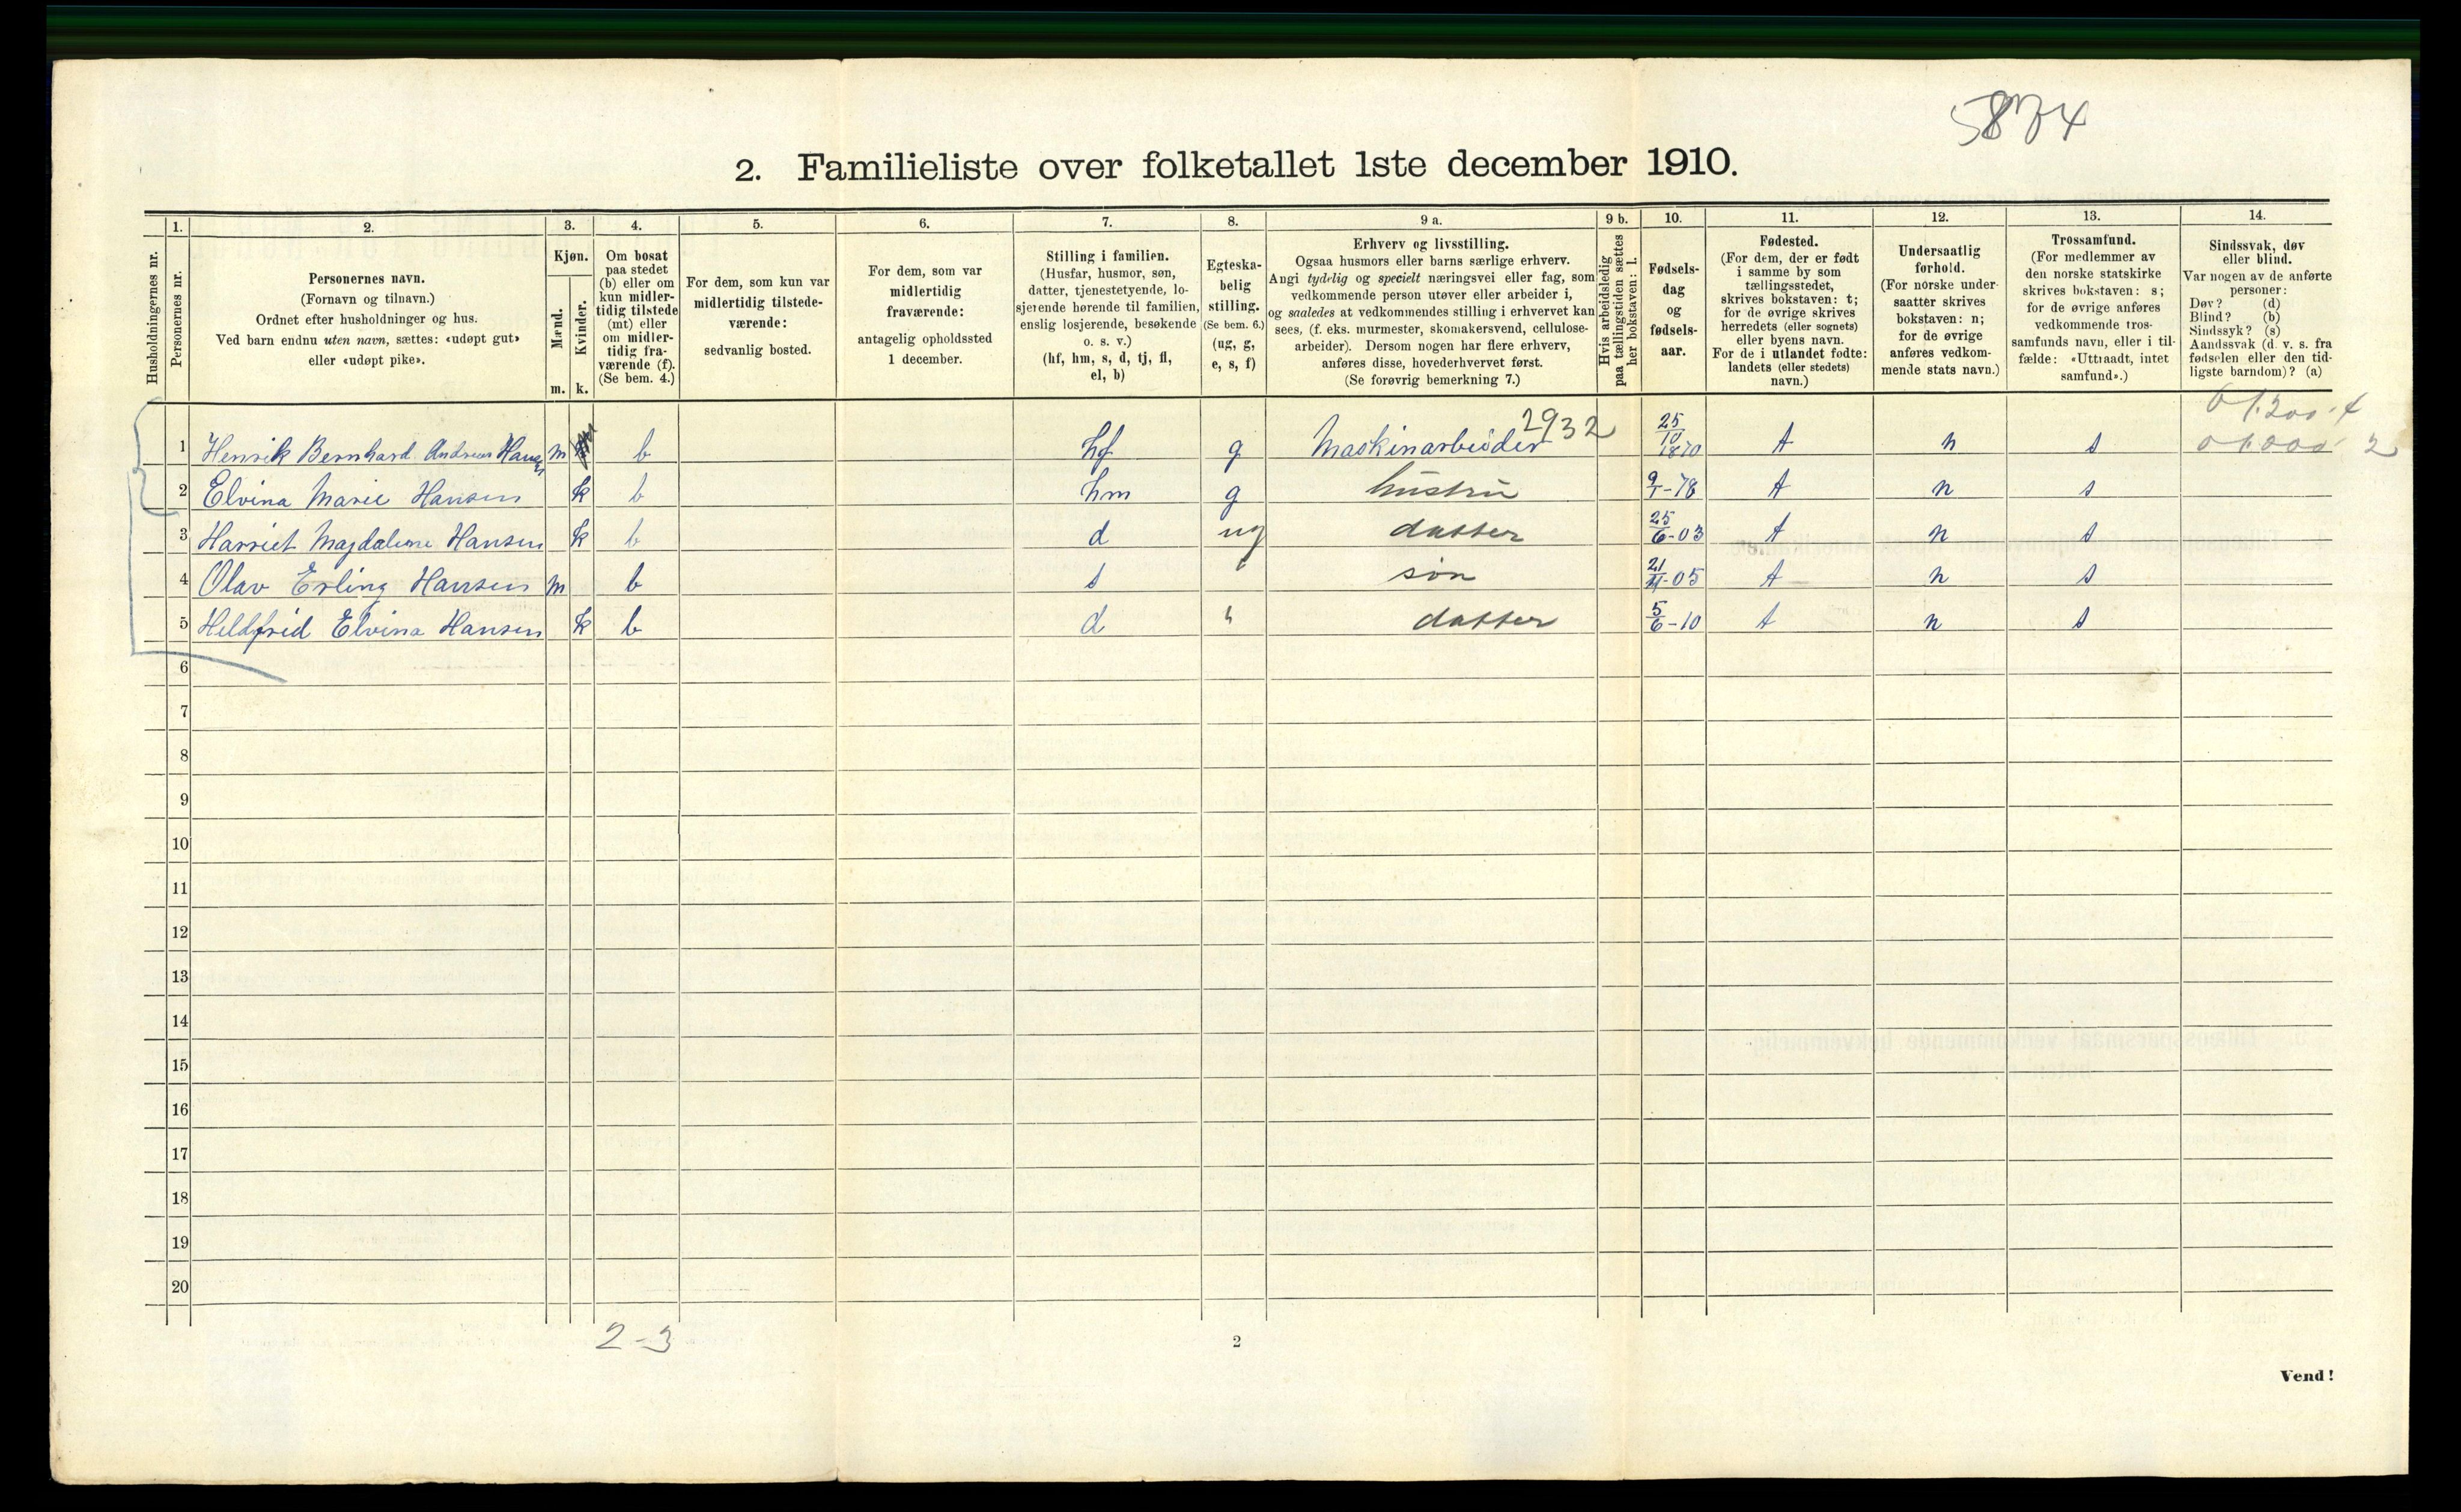 5874
2. Familieliste over folketallet 1ste december 1910.
Husholdningernes nr.
1.
Personernes nr.
2.
Personernes navn.
(Fornavn og tilnavn.)
Ordnet efter husholdninger og hus.
Ved barn endnu uten navn, sættes: «udøpt gut»
eller «udøpt pike».
3.
Kjøn.
Mænd.
Kvinder.
m. k.
4.
Om bosat
paa stedet
(b) eller om
kun midler-
tidig tilstede
(mt) eller
om midler-
tidig fra-
værende (f).
(Se bem. 4.)
5.
For dem, som kun var
midlertidig tilstede-
værende:
sedvanlig bosted.
6.
For dem, som var
midlertidig
fraværende:
antagelig opholdssted
1 december.
7.
Stilling i familien.
(Husfar, husmor, søn,
datter, tjenestetyende, lo-
sjerende hørende til familien,
enslig losjerende, besøkende
o. s. v.)
(hf, hm, s, d, tj, fl,
el, b)
8.
Egteska-
belig
stilling.
(Se bem. 6.)
(ug, g,
e, s, f)
9 a.
Erhverv og livsstilling.
Ogsaa husmors eller barns særlige erhverv.
Angi tydelig og specielt næringsvei eller fag, som
vedkommende person utøver eller arbeider i,
og saaledes at vedkommendes stilling i erhvervet kan
sees, (f. eks. murmester, skomakersvend, cellulose-
arbeider). Dersom nogen har flere erhverv,
anføres disse, hovederhvervet først.
(Se forøvrig bemerkning 7.)
9 b.
Hvis arbeidsledig
paa tællingstiden sættes
her bokstaven: l.
10.
Fødsels-
dag
og
fødsels-
aar.
11.
Fødested.
(For dem, der er født
i samme by som
tællingsstedet,
skrives bokstaven: t;
for de øvrige skrives
herredets (eller sognets)
eller byens navn.
For de i utlandet fødte:
landets (eller stedets)
navn.)
12.
Undersaatlig
forhold.
(For norske under-
saatter skrives
bokstaven: n;
for de øvrige
anføres vedkom-
mende stats navn.)
13.
Trossamfund.
(For medlemmer av
den norske statskirke
skrives bokstaven: s;
for de øvrige anføres
vedkommende tros-
samfunds navn, eller i til-
fælde: «Uttraadt, intet
samfund».)
14.
Sindssvak, døv
eller blind.
Var nogen av de anførte
personer:
Døv? (d)
Blind? (b)
Sindssyk? (s)
Aandssvak (d. v. s. fra
fødselen eller den tid-
ligste barndom)? (a)
1 Henrik Bernhard Andreas Hansen m b hf g Maskinarbeider 2932 25/10 1870 t n s
2 Elvina Marie Hansen k b hm g hustru 9/1-78 t n s
3 Harriet Magdalene Hansen k b d ug datter 25/6-03 t n s
4 Olav Erling Hansen m b s " søn 21/11-05 t n s
5 Hildfrid Elvina Hansen k b d " datter 5/6-10 t n s
6
7
8
9
10
11
12
13
14
15
16
17
18
19
20
2-3
2
Vend!